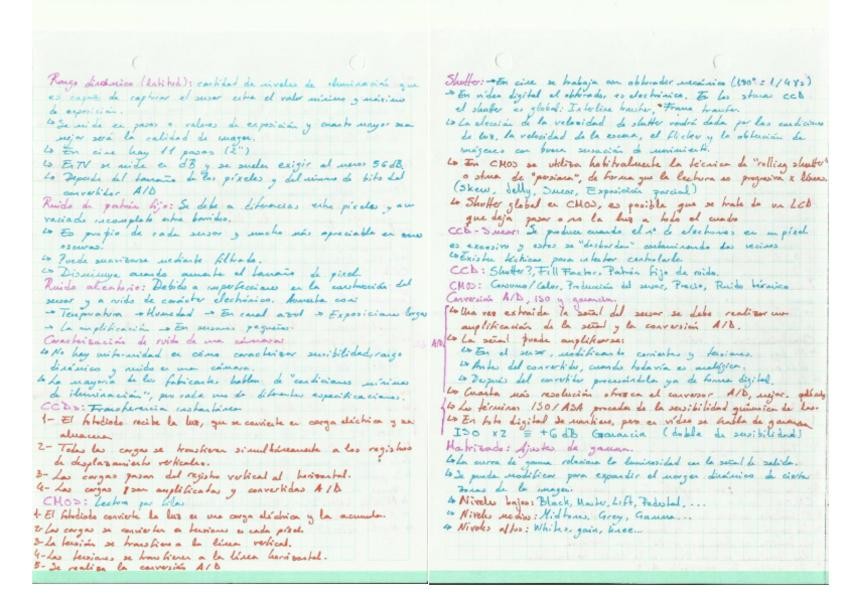 Rango dinámico (Latitud): cantidad de niveles de iluminación que
es capaz de capturar el sensor entre el valor mínimo y máximo
de exposición.
↳ Se mide en pasos o valores de exposición y cuanto mayor sea
mejor será la calidad de imagen.
↳ En cine hay 11 pasos
↳ En TV se mide en dB y se suele exigir al menos 56 dB.
↳ Depende del tamaño de los píxeles y del número de bits del
convertidor A/D
Ruido de patrón fijo: Se debe a diferencias entre píxeles y a un
variado incompleto entre barridos.
↳ Es propio de cada sensor y mucho más apreciable en zonas
oscuras.
↳ Puede suavizarse mediante filtrado.
↳ Disminuye cuando aumenta el tamaño de pixel
Ruido aleatorio: Debido a imperfecciones en la construcción del
sensor y a ruido de carácter electrónico. Aumenta con:
→ Temperatura → Humedad → En canal azul → Exposiciones largas
→ La amplificación → En sensores pequeños.
Caracterización de ruido de una cámara
↳ No hay uniformidad en cómo caracterizar sensibilidad, rango
dinámico y ruido en una cámara.
↳ La mayoría de los fabricantes hablan de "condiciones mínimas
de iluminación", pero cada uno da diferentes especificaciones.
CCDs: Transferencia instantánea
1- El fotodiodo recibe la luz, que se convierte en carga eléctrica y se
almacena
2- Todas las cargas se transfieren simultáneamente a los registros
de desplazamiento verticales.
3- Las cargas pasan del registro vertical al horizontal.
4- Las cargas son amplificadas y convertidas A/D
CMOS: Lectura por filas
1- El fotodiodo convierte la luz en una carga eléctrica y la acumula.
2- Las cargas se convierten a tensiones en cada pixel
3- La tensión se transfiere a la línea vertical.
4- Las tensiones se transfieren a la línea horizontal.
5- Se realiza la conversión A/D
Shutter: → En cine se trabaja con obturador mecánico (180° = 1/48s)
→ En vídeo digital el obturador es electrónico. En los CCD
el shutter es global: Interline transfer, Frame transfer.
↳ La elección de la velocidad de shutter vendrá dada por las condiciones
de luz, la velocidad de la escena, el flicker y la obtención de
imágenes con buena sensación de movimiento.
↳ En CMOS se utiliza habitualmente la técnica de "rolling shutter"
o de "persiana", de forma que la lectura es progresiva x líneas
(Skew, Jelly, Smear, Exposición parcial)
↳ Shutter global en CMOS, es posible que se trate de un LCD
que deja pasar o no la luz a todo el cuadro
CCD-Smear: Se produce cuando el nº de electrones en un pixel
es excesivo y estos se "desbordan" contaminando los vecinos
↳ Existen técnicas para intentar controlarlo
CCD: Shutter?, Fill Factor, Patrón fijo de ruido.
CMOS: Consumo/Calor, Producción del sensor, Precio, Ruido térmico
Conversión A/D, ISO y ganancia.
↳ Una vez extraída la señal del sensor se debe realizar una
amplificación de la señal y la conversión A/D.
↳ La señal puede amplificarse:
↳ En el sensor, modificando corrientes y tensiones.
↳ Antes del convertidor, cuando todavía es analógica.
↳ Después del convertidor procesándola ya de forma digital.
↳ Cuanta más resolución ofrezca el conversor A/D, mejor.
↳ Los términos ISO/ASA proceden de la sensibilidad química
↳ En foto digital se mantiene, pero en vídeo se habla de ganancia
ISO x2 = +6 dB Ganancia (doble de sensibilidad)
Matrizado: Ajustes de gamma.
↳ La curva de gamma relaciona la luminosidad con la señal de salida.
↳ Se puede modificar para expandir el margen dinámico de ciertas
zonas de la imagen:
↳ Niveles bajos: Black, Master, Lift, Pedestal, ...
↳ Niveles medios: Midtone, Grey, Gamma...
↳ Niveles altos: Whites, gain, knee...